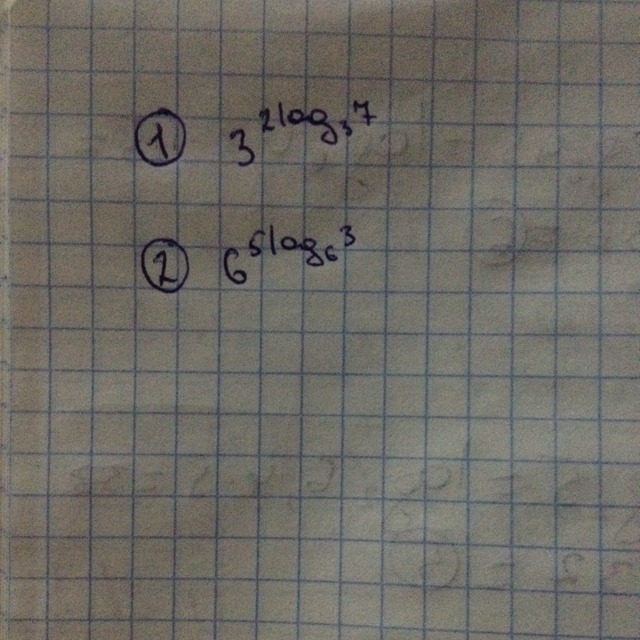 ① 3^{2log_3 7}
② 6^{5log_6 3}